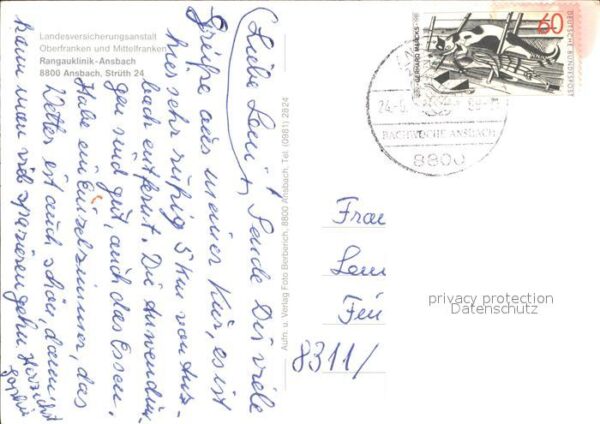 Landesversicherungsanstalt
Oberfranken und Mittelfranken
Rangauklinik-Ansbach
8800 Ansbach, Strüth 24
Liebe Leni, Sende Dir viele
Grüße aus meiner Kur, es ist
hier sehr ruhig 5 km von Ans-
bach entfernt. Die Anwendun-
gen sind gut, auch das Essen.
Habe ein Einzelzimmer, das
Wetter ist auch schön, dann
kann man viel spazieren gehn Herzlichst
Aufn. u. Verlag Foto Berberich, 8800 Ansbach, Tel. (0981) 2824
60
DEUTSCHE BUNDESPOST
GERHARD MARCKS
BACHWOCHE ANSBACH
8800
Frau
Len
8311/
privacy protection
Datenschutz